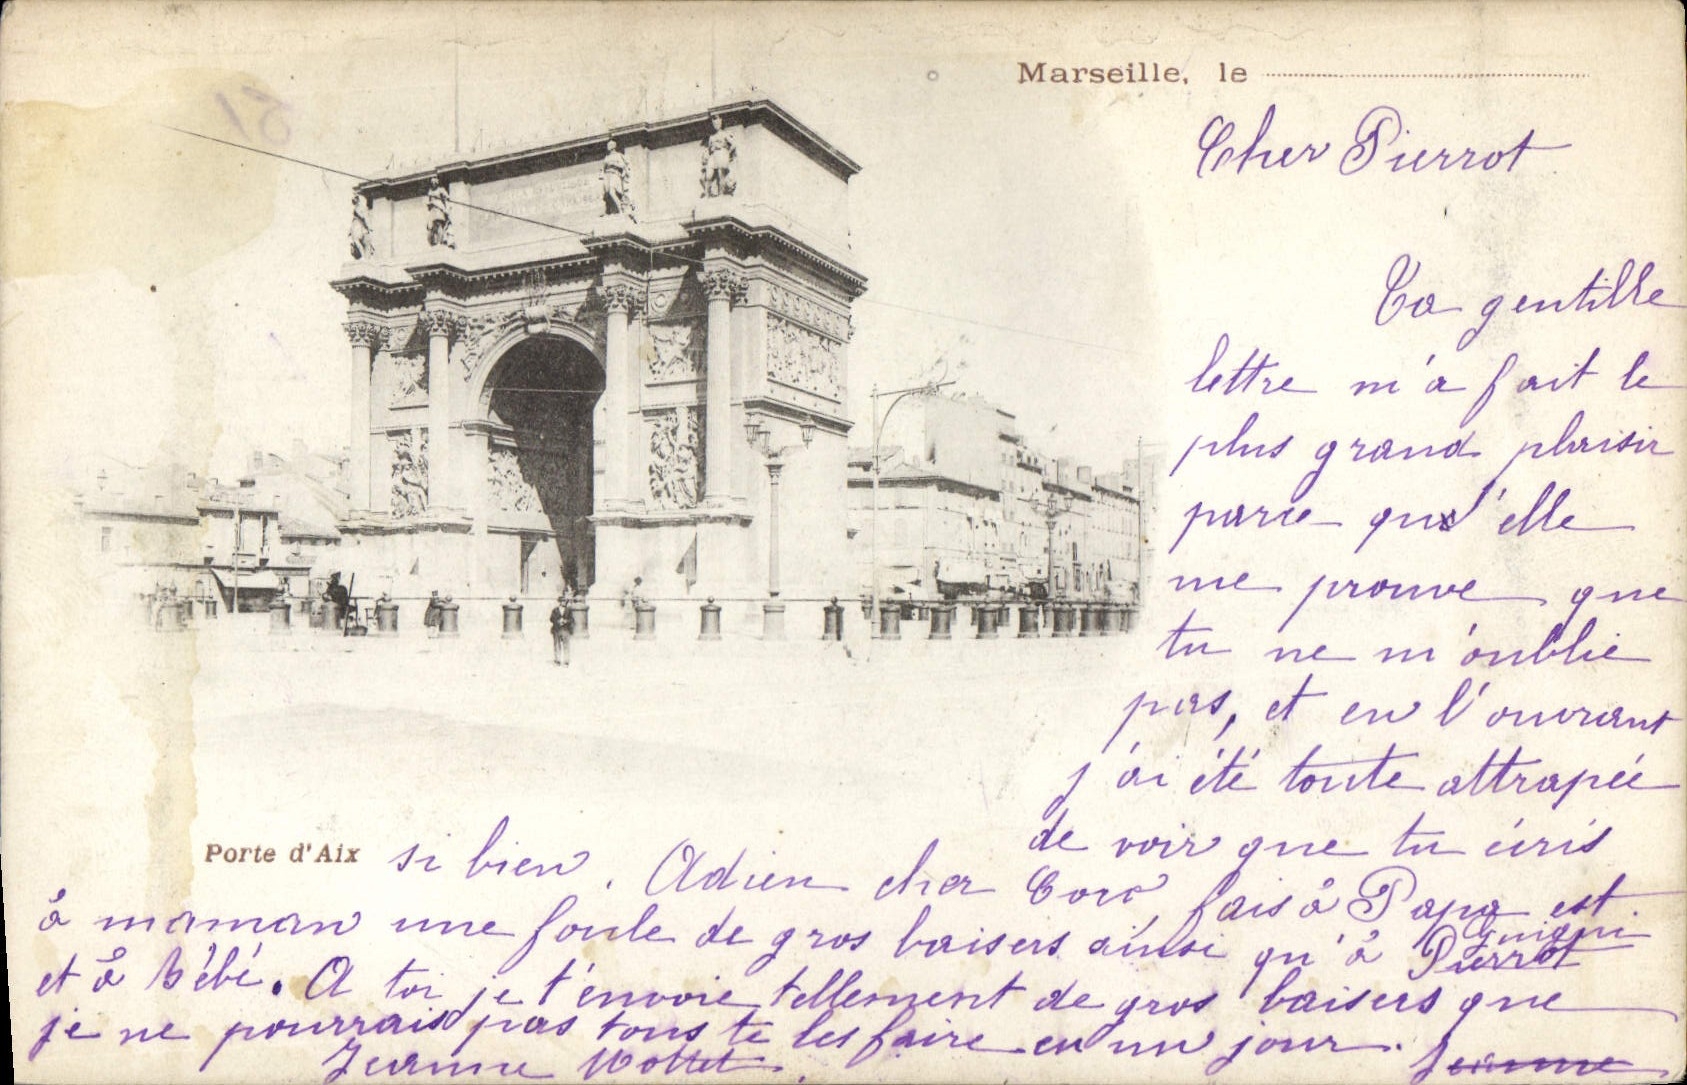 Marseille, le
Cher Pierrot
Ta gentille
lettre m'a fait le
plus grand plaisir
parce qu'elle
me prouve que
tu ne m'oublie
pas, et en l'ouvrant
j'ai été toute attrapée
de voir que tu écris
Porte d'Aix
si bien. Adieu cher Coco, fais à Papa est
à maman une foule de gros baisers ainsi qu'à Pierrot Guigui
et à Bébé. A toi je t'envoie tellement de gros baisers que
je ne pourrais pas tous te les faire en un jour. Jeanne
Jeanne
51